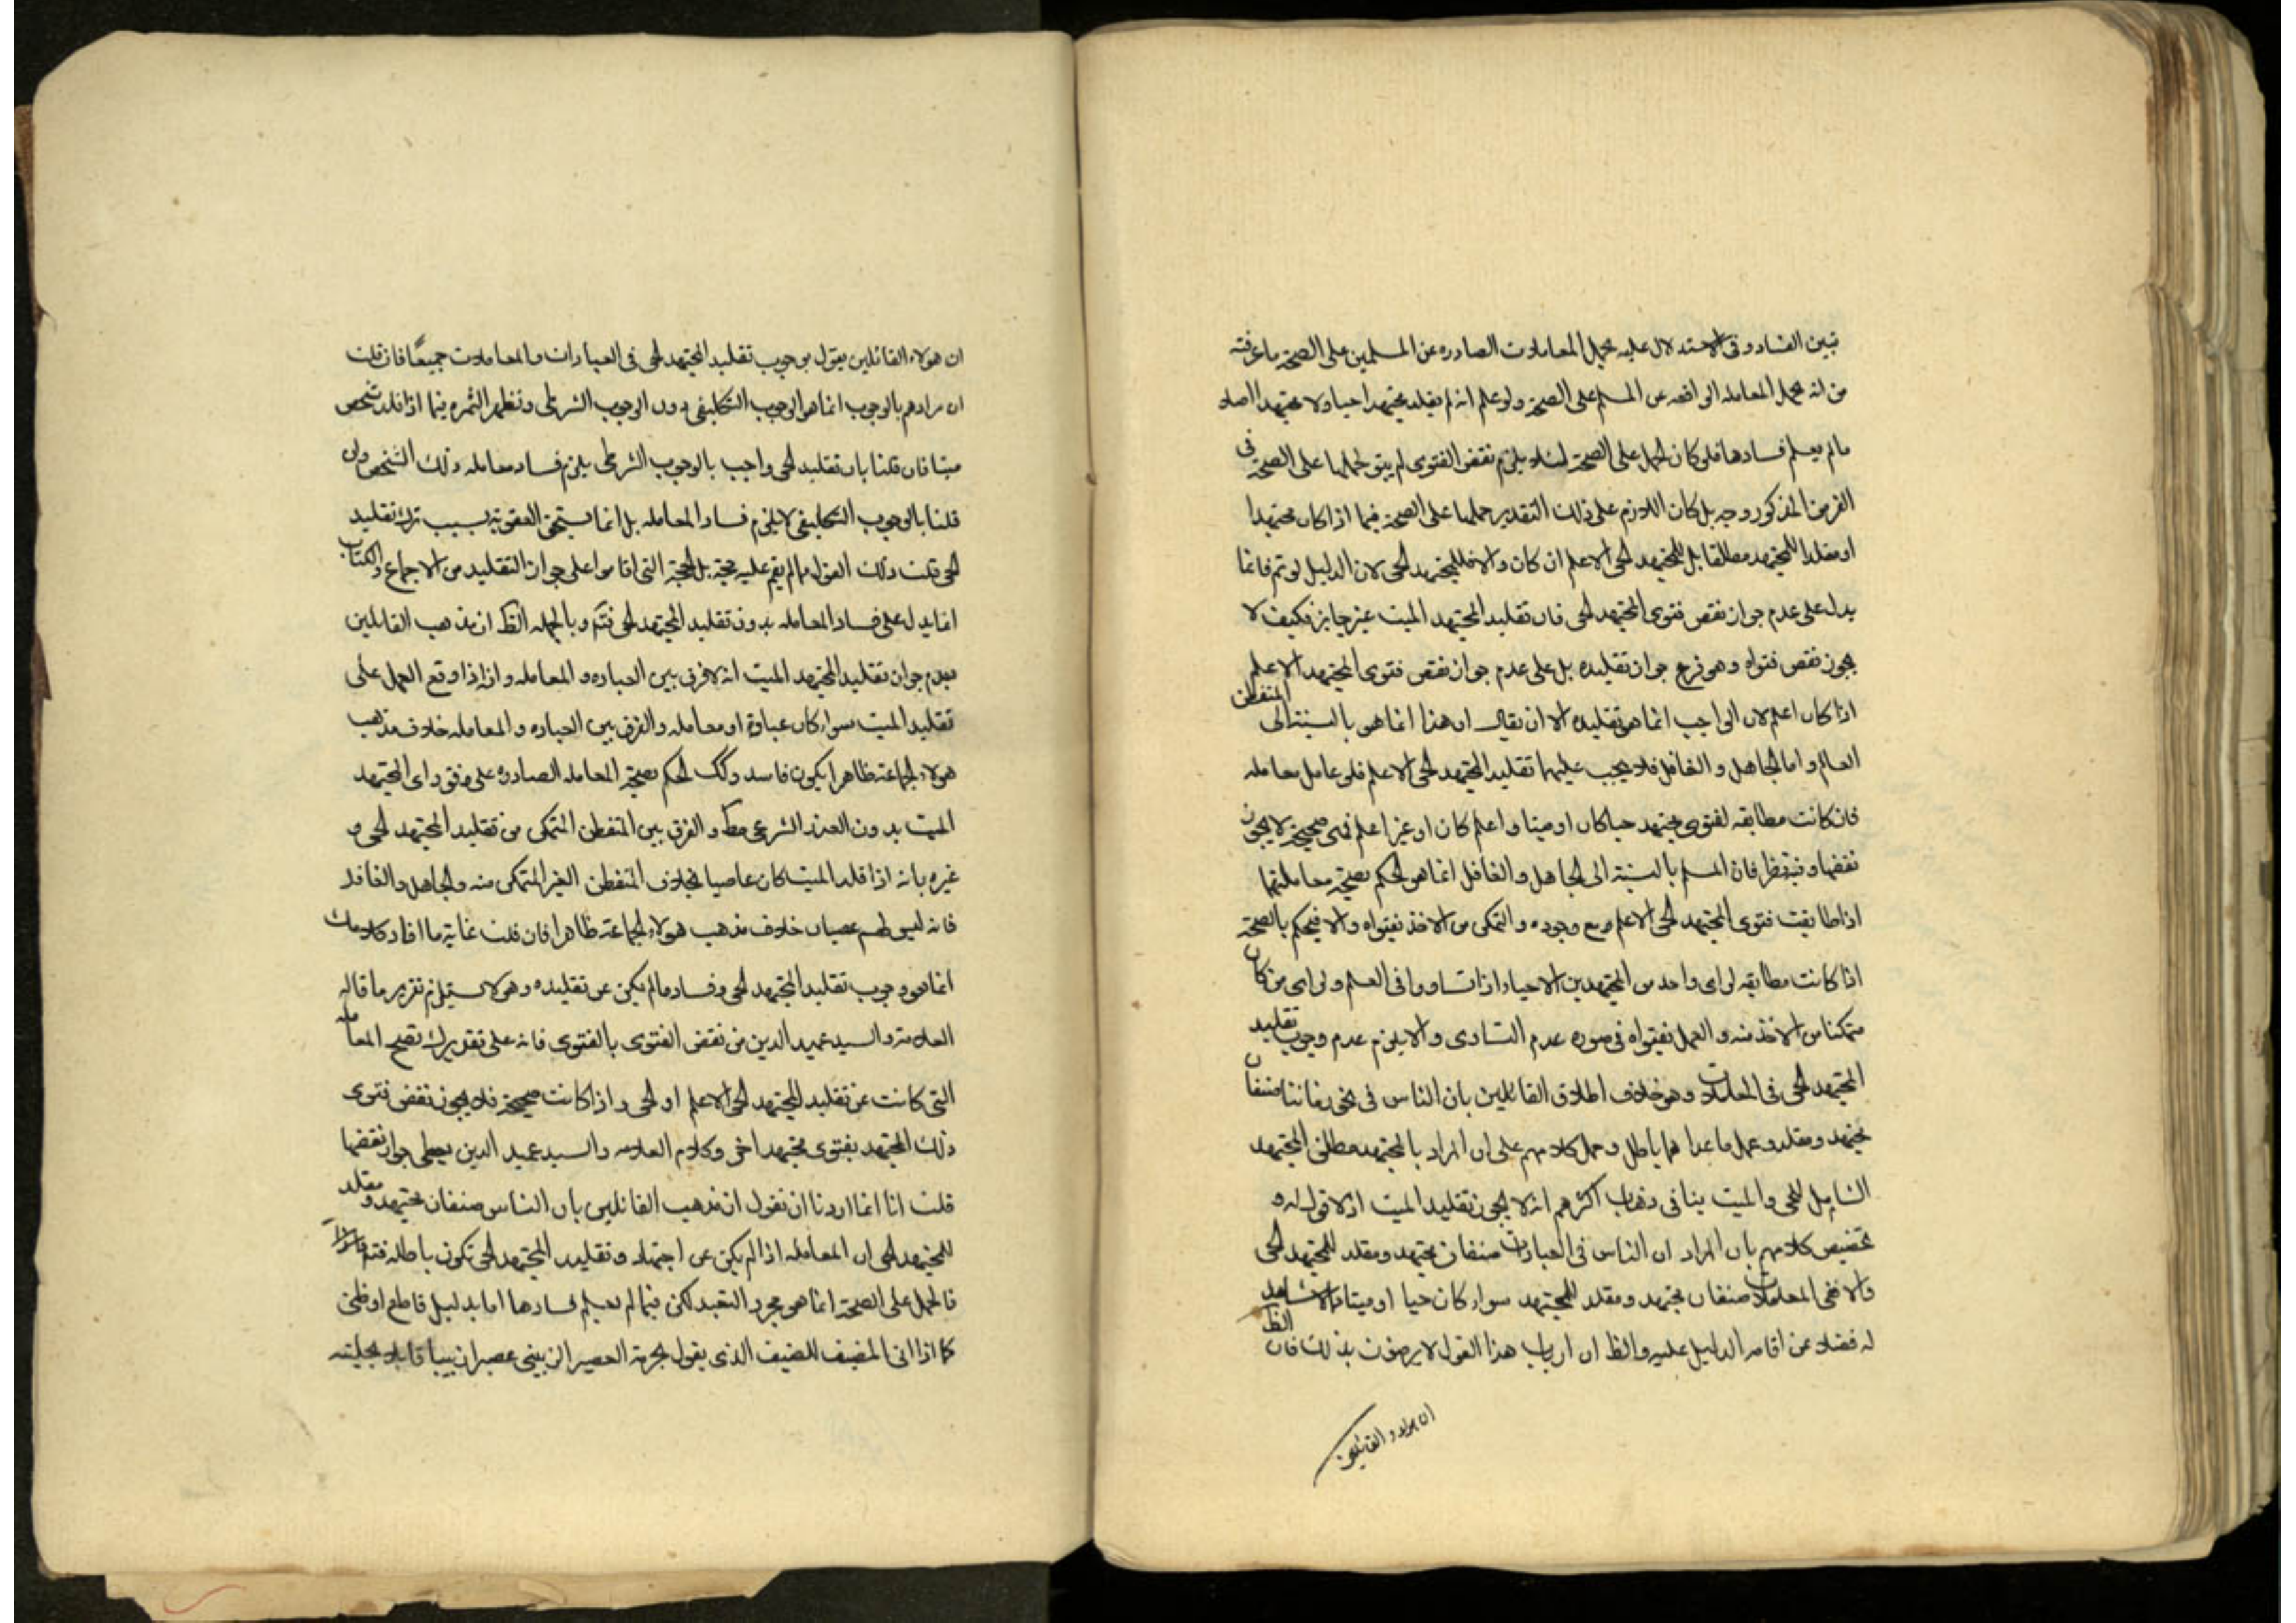 تبين الفساد وفى الاستدلال عليه بحمل المعاملات الصادره عن المسلمين على الصحة ما عرفته
من انه يحمل المعامله الواقعه من المسلم على الصحة ولو علم انه لم يقلد مجتهدا حيا ولا مجتهدا اصلا
ما لم يعلم فسادها فلو كان الحمل على الصحة لئلا يلزم نقض الفتوى لم يبق لحملها على الصحة فى
الفرض المذكور وجه بل كان اللازم على ذلك التقدير حملها على الصحة فيما اذا كان مجتهدا
او مقلدا للمجتهد مطلقا بل للمجتهد الحى الاعلم ان كان والا فللمجتهد الحى لان الدليل لو تم فانما
يدل على عدم جواز نقض فتوى المجتهد الحى فان تقليد المجتهد الميت غير جايز فكيف لا
يجوز نقض فتواه وهو فرع جواز تقليده بل على عدم جواز نقض فتوى المجتهد الاعلم
اذا كان اعلم لان الواجب انما هو تقليده الا ان يقال ان هذا انما هو بالنسبة الى المتفطن
العالم واما الجاهل والغافل فلا يجب عليهما تقليد المجتهد الحى الاعلم فلو عامل معامله
فان كانت مطابقه لفتوى مجتهد حيا كان او ميتا واعلم كان او غير اعلم فهى صحيحة لا يجوز
نقضها وفيه نظر فان المسلم بالنسبة الى الجاهل والغافل انما هو الحكم بصحة معاملتهما
اذا طابقت فتوى المجتهد الحى الاعلم مع وجوده والتمكن من الاخذ بفتواه والا فيحكم بالصحة
اذا كانت مطابقه لراى واحد من المجتهدين الاحياء اذا تساووا فى العلم ولراى من كان
متمكنا من الاخذ منه والعمل بفتواه فى صوره عدم التساوى والا يلزم عدم وجوب تقليد
المجتهد الحى فى المعاملات وهو خلاف اطلاق القائلين بان الناس فى نحو زماننا صنفان
مجتهد ومقلد وعمل ما عداهما باطل وحمل كلامهم على ان المراد بالمجتهد مطلق المجتهد
الشامل للحى والميت ينافى ذهاب اكثرهم انه لا يجوز تقليد الميت اذ لا قول له و
تخصيص كلامهم بان المراد ان الناس فى العبادات صنفان مجتهد ومقلد للمجتهد الحى
والا ففى المعاملات صنفان مجتهد ومقلد للمجتهد سواء كان حيا او ميتا لا شاهد
له فضلا عن اقامه الدليل عليه والظ ان ارباب هذا القول لا يرضون بذلك فان الظ
ان هولاء القائلين
ان هولاء القائلين يقول بوجوب تقليد المجتهد الحى فى العبادات والمعاملات جميعًا فان قلت
ان مرادهم بالوجوب انما هو الوجوب التكليفى دون الوجوب الشرطى وتظهر الثمره فيما اذا قلد شخص
ميتا فان قلنا بان تقليد الحى واجب بالوجوب الشرطى يلزم فساد معامله ذلك الشخص وان
قلنا بالوجوب التكليفى لا يلزم فساد المعامله بل انما يستحق العقوبة بسبب ترك تقليد
الحى قلت ذلك القول مما لم يقم عليه حجة بل الحجة التى اقاموا على جواز التقليد من الاجماع والكتاب
انما يدل على فساد المعامله بدون تقليد المجتهد الحى فتم وبالجمله الظ ان مذهب القايلين
بعدم جواز تقليد المجتهد الميت انه لا فرق بين العباده والمعامله وانه اذا وقع العمل على
تقليد الميت سواء كان عبادة او معامله والفرق بين العباده والمعامله خلاف مذهب
هولاء الجماعة ظاهرا يكون فاسد وكك الحكم بصحة المعامله الصادره على وفق راى المجتهد
الميت بدون العذر الشرعى مط والفرق بين المتفطن المتمكن من تقليد المجتهد الحى و
غيره بانه اذا قلد الميت كان عاصيا بخلاف المتفطن الغير المتمكن منه والجاهل والغافل
فانه ليس لهم عصيان خلاف مذهب هولاء الجماعة ظاهرا فان قلت غاية ما افاد كلامك
انما هو وجوب تقليد المجتهد الحى وفساد ما لم يكن عن تقليده وهو لا يستلزم تقرير ما قاله
العلامة والسيد عميد الدين من نقض الفتوى بالفتوى فانه على تقديرك تصح المعامله
التى كانت عن تقليد للمجتهد الحى الاعلم او الحى واذا كانت صحيحة فلا يجوز نقض فتوى
ذلك المجتهد بفتوى مجتهد اخر وكلام العلامه والسيد عميد الدين يعطى جواز نقضها
قلت انا انما اردنا ان نقول ان مذهب القائلين بان الناس صنفان مجتهد ومقلد
للمجتهد الحى ان المعامله اذا لم يكن عن اجتهاد وتقليد المجتهد الحى تكون باطله فتم
فالحمل على الصحة انما هو مجرد التعبد لكن فيما لم نعلم فسادها اما بدليل قاطع او ظنى
كما اذا اتى المضيف للضيف الذى يقول بحرمة العصير الزبيبى عصيرا زبيبيا قايلا بحليته